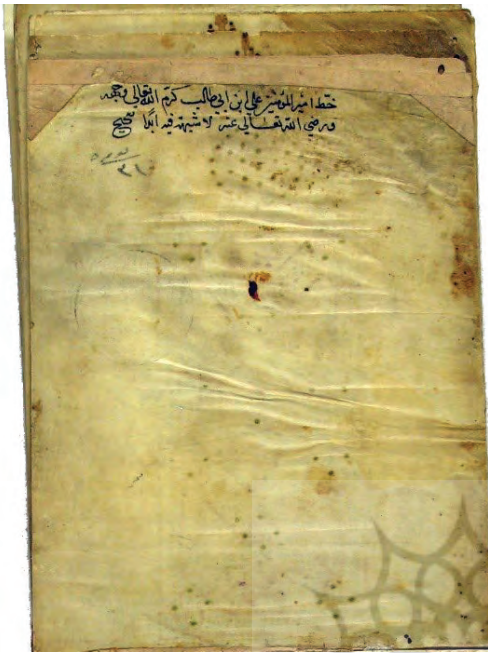 خط امير المؤمنين علي ابن ابي طالب كرم الله تعالى وجهه
ورضي الله تعالى عنه لا شبهة فيه ابدا صحيح
٣١